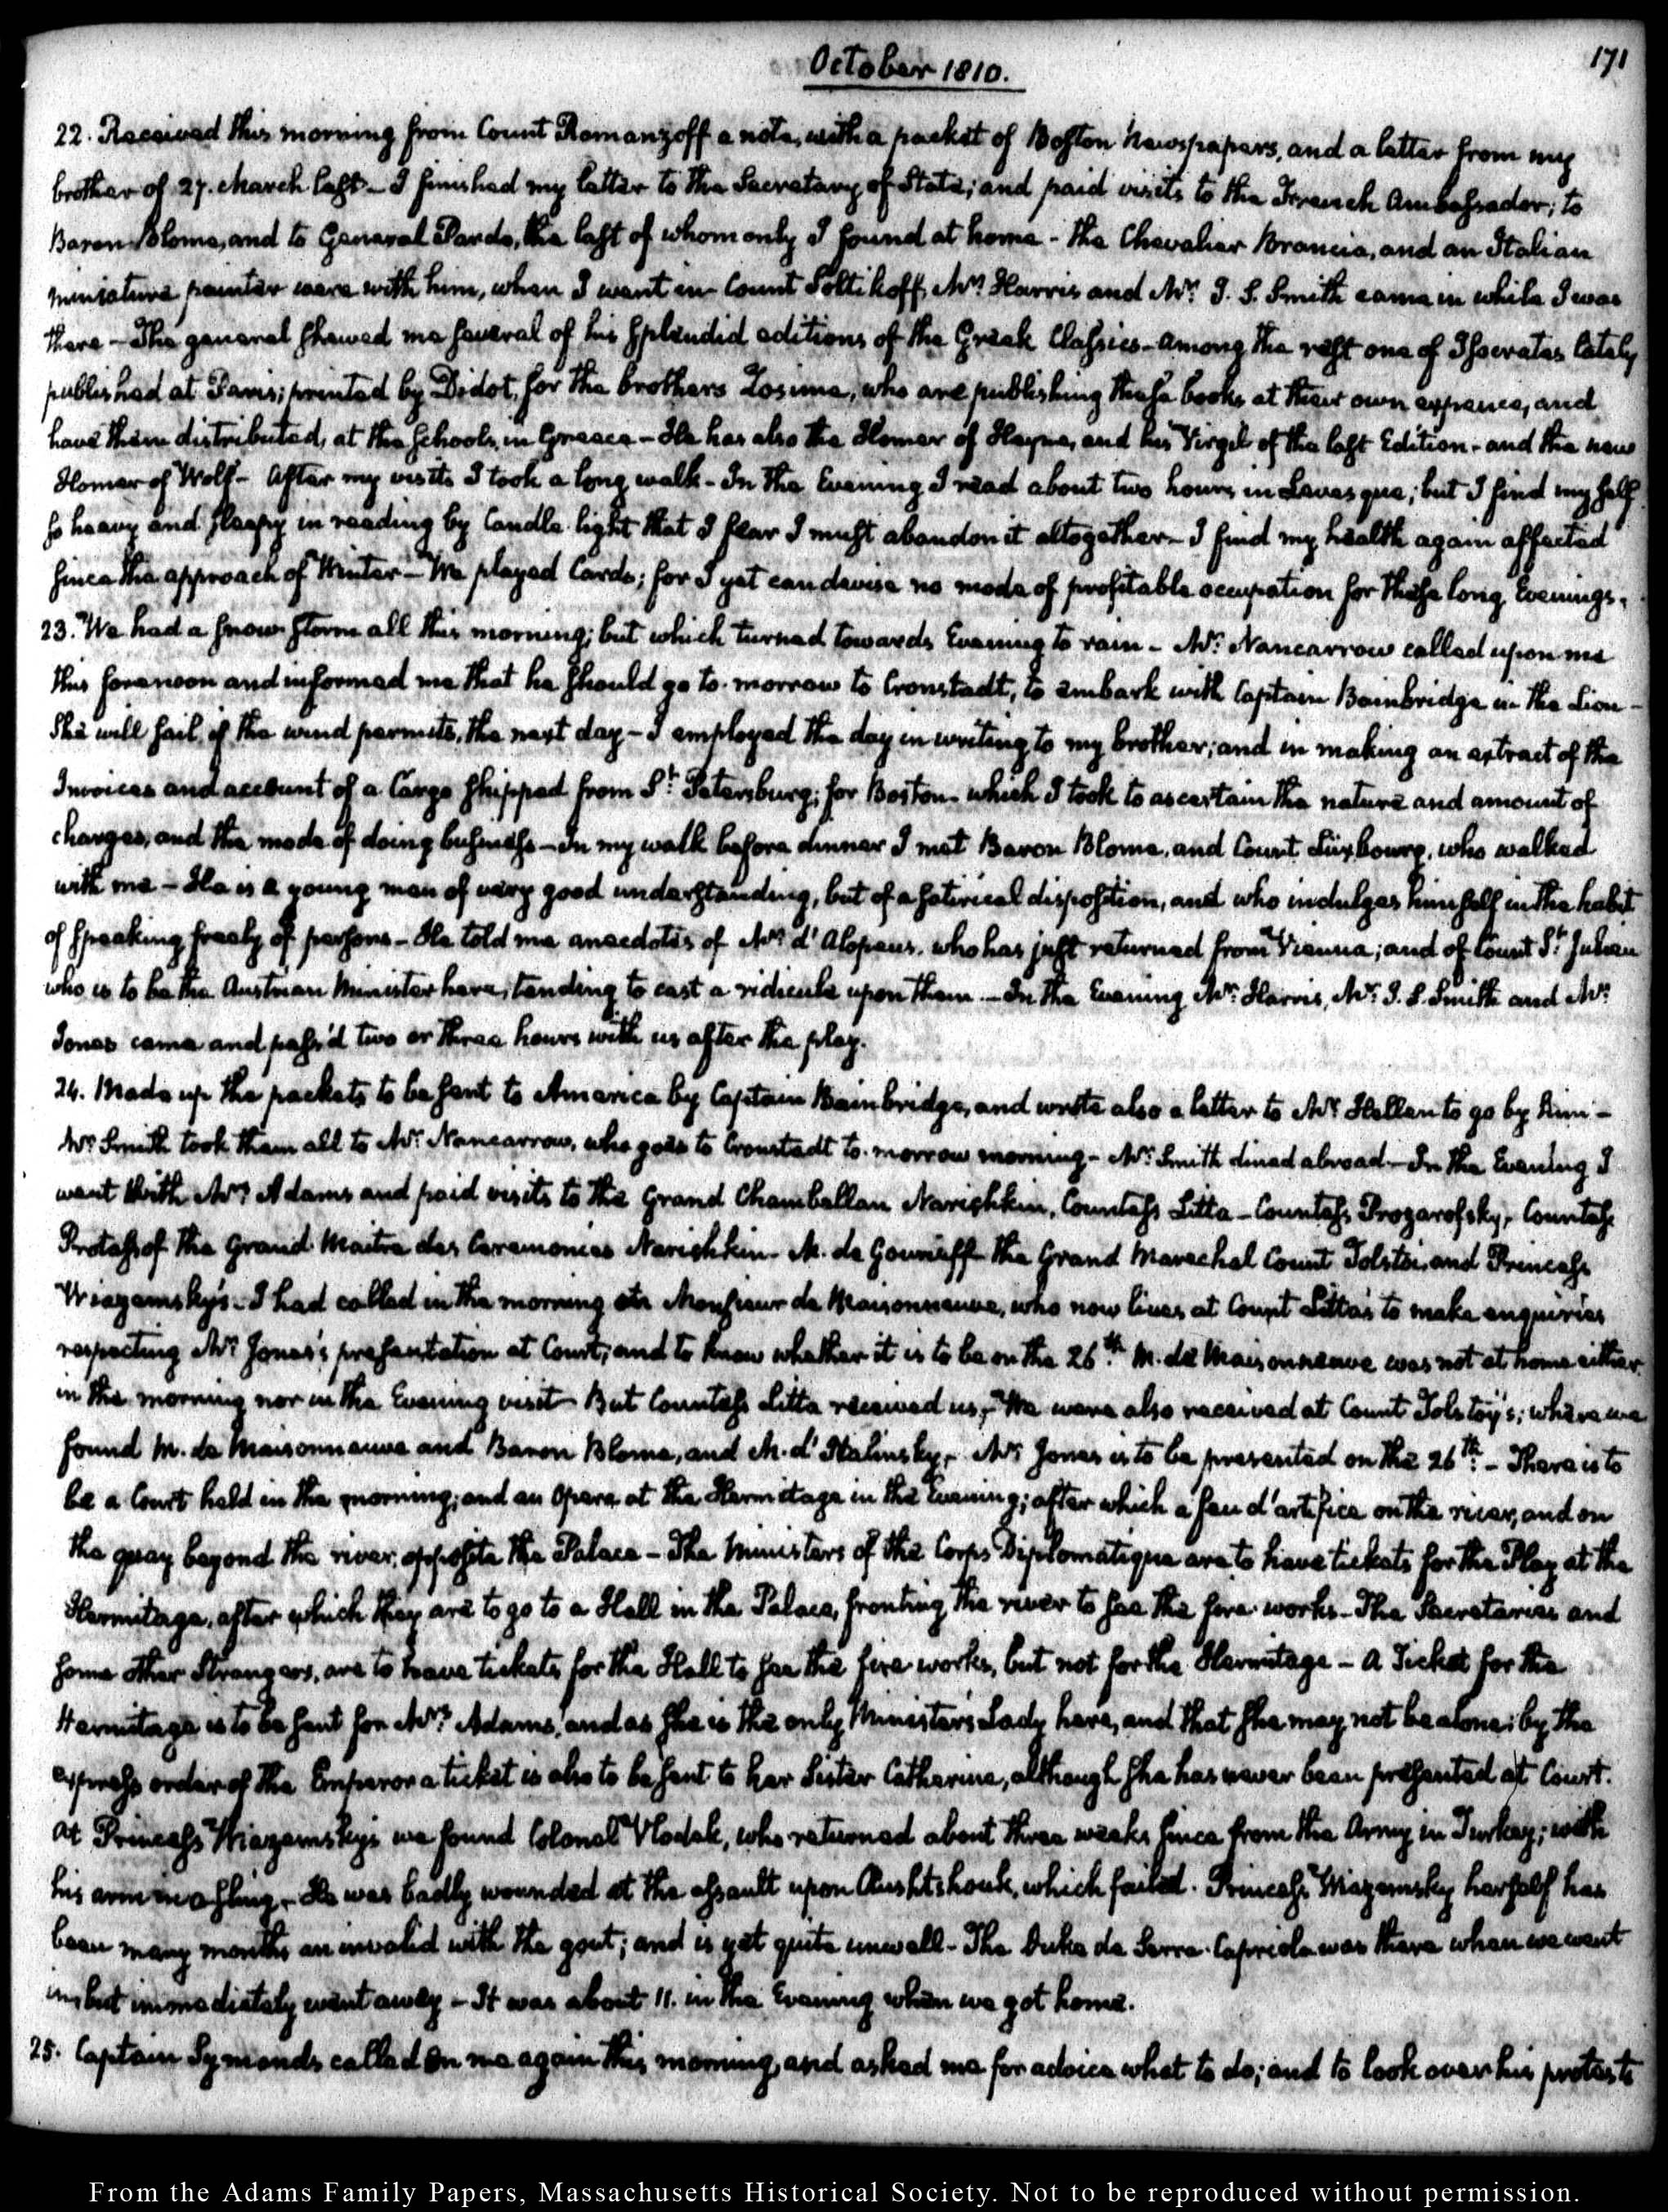 October 1810.
171
22. Received this morning from Count Romanzoff a note, with a packet of Boston Newspapers, and a letter from my
brother of 27. March last - I finished my letter to the Secretary of State; and paid visits to the French Ambassador; to
Baron Blome, and to General Pardo, the last of whom only I found at home - The Chevalier Brancia, and an Italian
miniature painter were with him, when I went in - Count Soltikoff, Mr Harris and Mr J. S. Smith came in while I was
there - The general shewed me several of his splendid editions of the Greek Classics - Among the rest one of Isocrates lately
published at Paris; printed by Didot, for the brothers Zosima, who are publishing these books at their own expence, and
have them distributed, at the Schools, in Greece - He has also the Homer of Heyne, and his Virgil of the last Edition - and the new
Homer of Wolf - After my visits I took a long walk - In the Evening I read about two hours in Levesque; but I find my self
so heavy and sleepy in reading by Candle light that I fear I must abandon it altogether - I find my health again affected
since the approach of Winter - We played Cards; for I yet can devise no mode of profitable occupation for these long Evenings.
23. We had a snow-storm all this morning; but which turned towards Evening to rain - Mr Nancarrow called upon me
this forenoon and informed me that he should go to-morrow to Cronstadt, to embark with Captain Bainbridge in the Lion -
She will sail, if the wind permits, the next day - I employed the day in writing to my brother; and in making an extract of the
Invoices and account of a Cargo shipped from St Petersburg; for Boston - which I took to ascertain the nature and amount of
charges, and the mode of doing business - In my walk before dinner I met Baron Blome, and Count Luxbourg, who walked
with me - He is a young man of very good understanding, but of a satirical disposition, and who indulges himself in the habit
of speaking freely of persons - He told me anecdotes of Mr d'Alopeus, who has just returned from Vienna; and of Count St Julien
who is to be the Austrian Minister here, tending to cast a ridicule upon them - In the Evening Mr Harris, Mr J. S. Smith and Mr
Jones came and pass'd two or three hours with us after the play.
24. Made up the packets to be sent to America by Captain Bainbridge, and wrote also a letter to Mr Hellen to go by him -
Mr Smith took them all to Mr Nancarrow, who goes to Cronstadt to-morrow morning - Mr Smith dined abroad - In the Evening I
went with Mrs Adams and paid visits to the Grand Chambellan Narishkin, Countess Litta - Countess Prozarofsky, Countess
Protassof the Grand Maitre des Ceremonies Narishkin - M. de Gourieff - the Grand Marechal Count Tolstoi, and Princess
Wiazemsky's - I had called in the morning on Monsieur de Maisonneuve, who now lives at Count Litta's to make enquiries
respecting Mr Jones's presentation at Court; and to know whether it is to be on the 26th M. de Maisonneuve was not at home either
in the morning nor in the Evening visit - But Countess Litta received us, - We were also received at Count Tolstoy's; where we
found M. de Maisonneuve and Baron Blome, and M. d'Italinsky, - Mr Jones is to be presented on the 26th - There is to
be a Court held in the morning; and an Opera at the Hermitage in the Evening; after which a feu d'artifice on the river, and on
the quay beyond the river, opposite the Palace - The Ministers of the Corps Diplomatique are to have tickets for the Play at the
Hermitage, after which they are to go to a Hall in the Palace, fronting the river to see the fire-works - The Secretaries and
some other Strangers, are to have tickets for the Hall to see the fire works, but not for the Hermitage - A Ticket for the
Hermitage is to be sent for Mrs Adams, and as she is the only Minister's Lady here, and that she may not be alone; by the
express order of the Emperor a ticket is also to be sent to her Sister Catherine, although she has never been presented at Court.
At Princess Wiazemsky's we found Colonel Vlodek, who returned about three weeks since from the Army in Turkey; with
his arm in a sling, - He was badly wounded at the assault upon Rushtshouk, which failed. Princess Wiazemsky herself has
been many months an invalid with the gout; and is yet quite unwell - The Duke de Serra-Capriola was there when we went
in, but immediately went away - It was about 11. in the Evening when we got home.
25. Captain Symonds called on me again this morning, and asked me for advice what to do; and to look over his protests
From the Adams Family Papers, Massachusetts Historical Society. Not to be reproduced without permission.